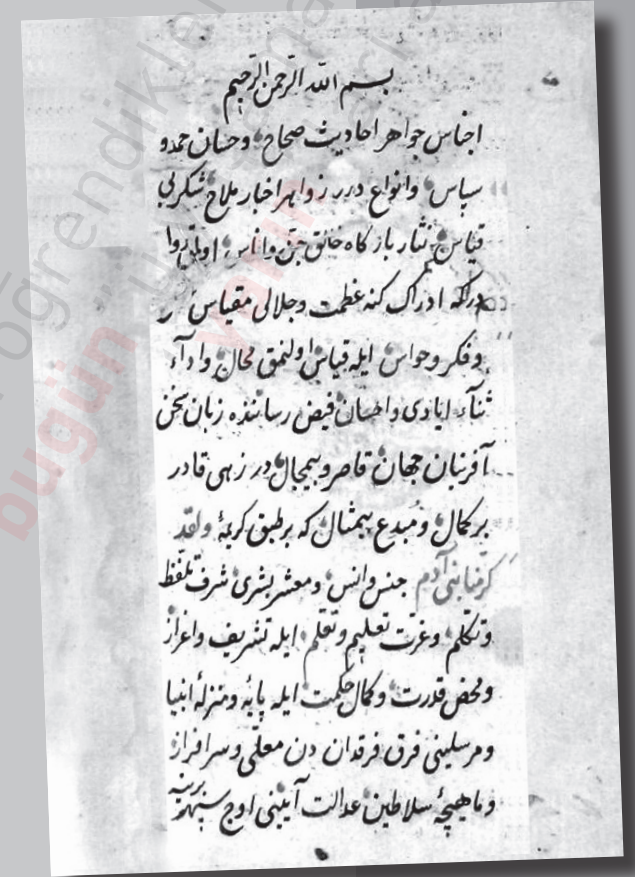 بسم الله الرحمن الرحيم
اجناس جواهر احاديث صحاح وحسان حمد و
سپاس وانواع درر زواهر اخبار ملاح شكر بى
قياس نثار باركاه خالق جن واناس اولمق روا
دركه ادراك كنه عظمت وجلالى مقياس
وفكر وحواس ايله قياس اولنمق محال وادآء
ثنآء ايادى واحسان فيض رساننده زبان سخن
آفرينان جهان قاصر وبيمجال در زهى قادر
بر كمال ومبدع بيمثال كه بر طبق كريمۀ ولقد
كرمنا بنى آدم جنس وانس ومعشر بشرى شرف تلفظ
وتكلم وعزت تعليم وتعلم ايله تشريف واعزاز
ومحض قدرت وكمال حكمت ايله پايه ومنزلۀ انبيا
ومرسلينى فرق فرقدان دن معلى وسرافراز
وماهيچۀ سلاطين عدالت آيينى اوج سپهر برينه
öğrendikler
bugün
yarın